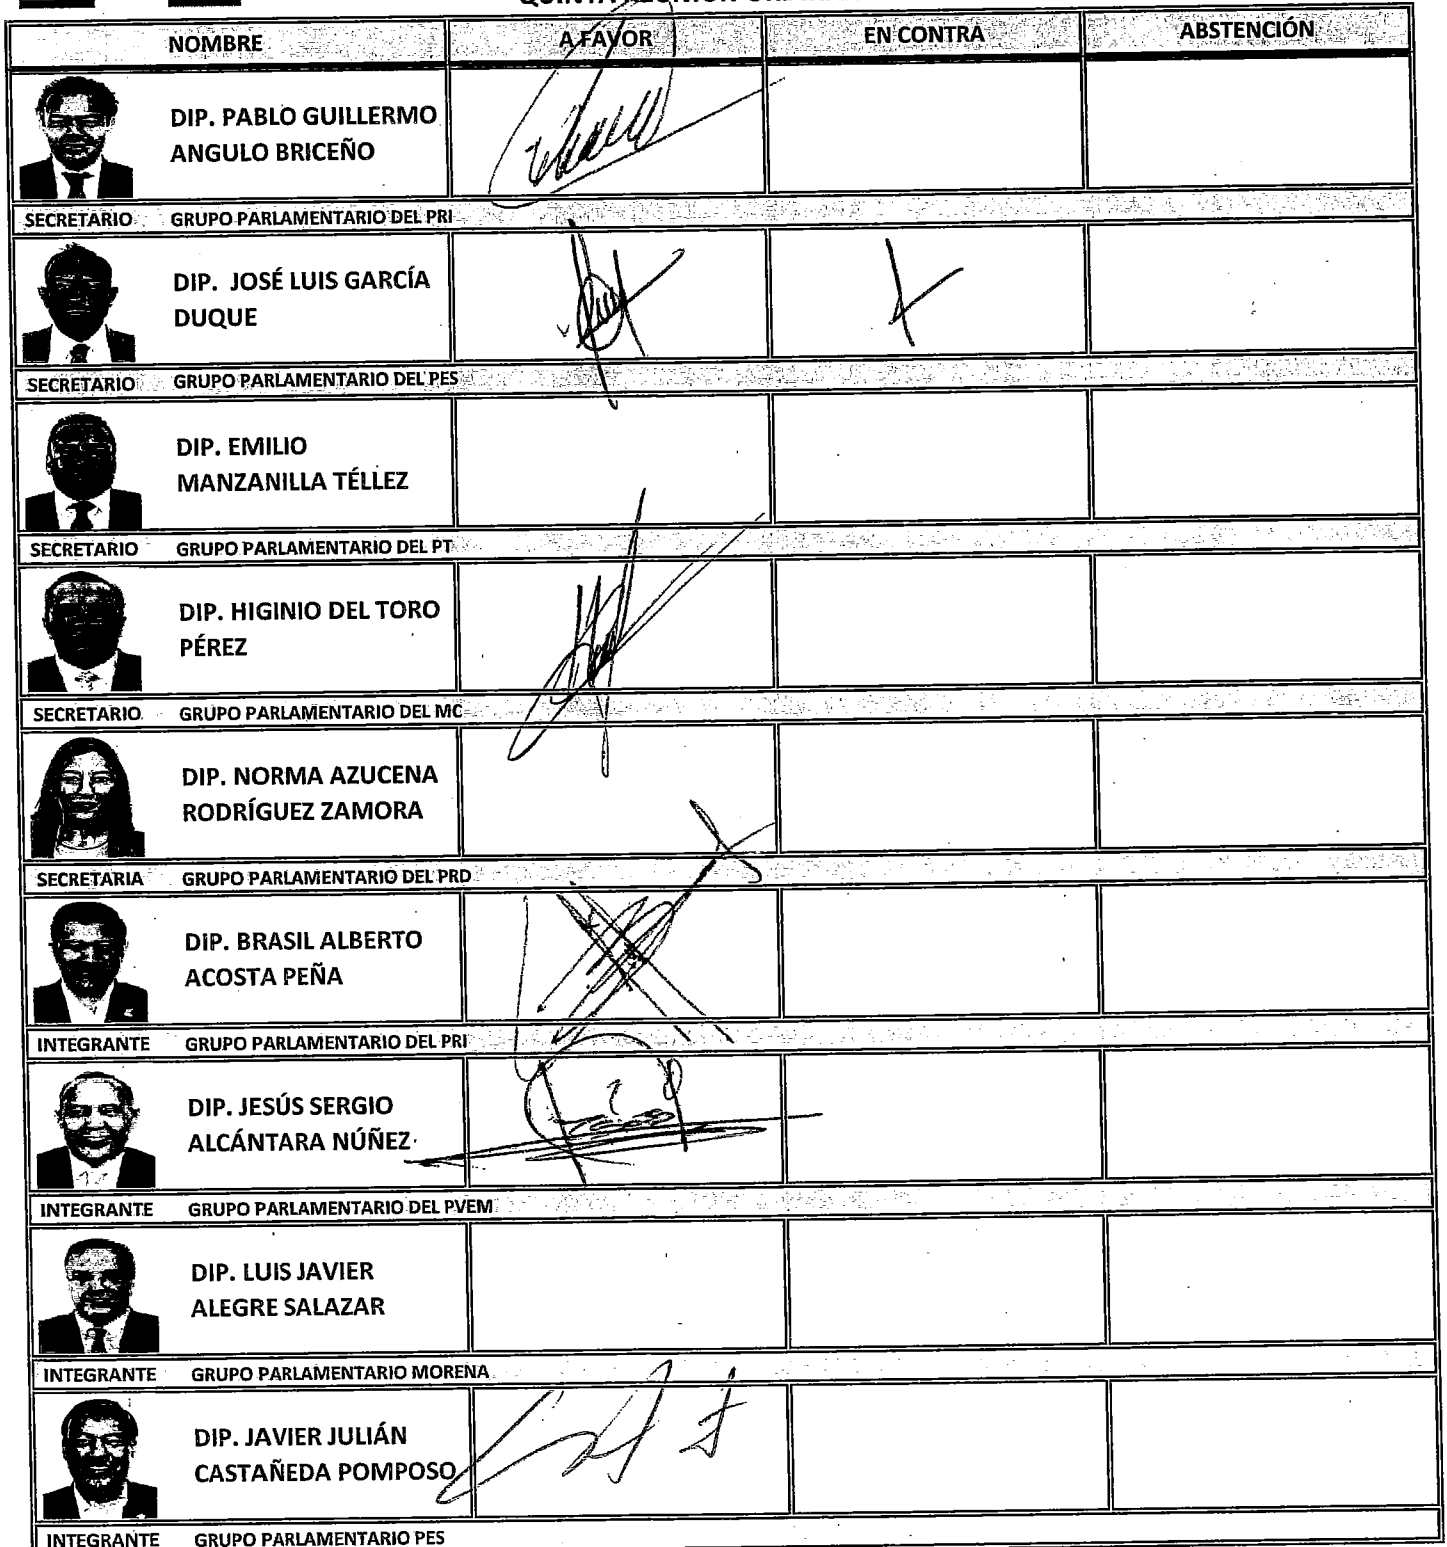 NOMBRE A FAVOR EN CONTRA ABSTENCIÓN
DIP. PABLO GUILLERMO
ANGULO BRICEÑO
SECRETARIO GRUPO PARLAMENTARIO DEL PRI
DIP. JOSÉ LUIS GARCÍA
DUQUE
SECRETARIO GRUPO PARLAMENTARIO DEL PES
DIP. EMILIO
MANZANILLA TÉLLEZ
SECRETARIO GRUPO PARLAMENTARIO DEL PT
DIP. HIGINIO DEL TORO
PÉREZ
SECRETARIO GRUPO PARLAMENTARIO DEL MC
DIP. NORMA AZUCENA
RODRÍGUEZ ZAMORA
SECRETARIA GRUPO PARLAMENTARIO DEL PRD
DIP. BRASIL ALBERTO
ACOSTA PEÑA
INTEGRANTE GRUPO PARLAMENTARIO DEL PRI
DIP. JESÚS SERGIO
ALCÁNTARA NÚÑEZ
INTEGRANTE GRUPO PARLAMENTARIO DEL PVEM
DIP. LUIS JAVIER
ALEGRE SALAZAR
INTEGRANTE GRUPO PARLAMENTARIO MORENA
DIP. JAVIER JULIÁN
CASTAÑEDA POMPOSO
INTEGRANTE GRUPO PARLAMENTARIO PES